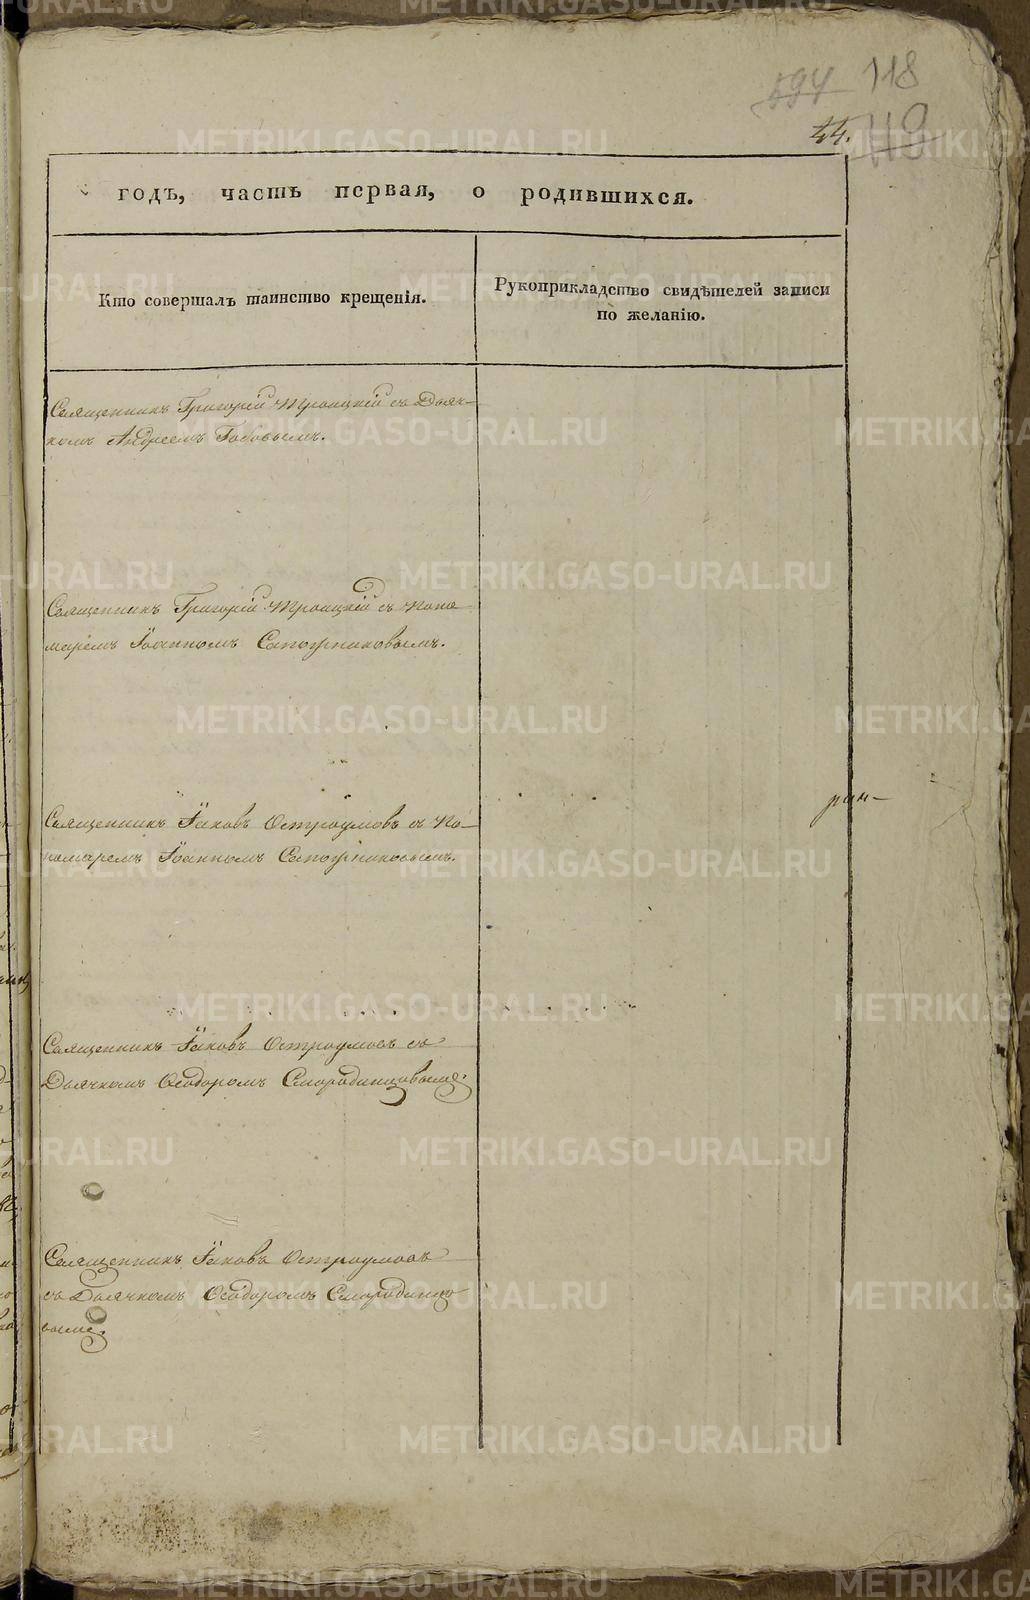 594 118
44. 119
годъ, часть первая, о родившихся.
Кто совершалъ таинство крещенія.
Рукоприкладство свидѣтелей записи
по желанію.
Священникъ Григорій Троицкій съ Дьяч-
комъ Андреемъ Бабовымъ.
Священникъ Григорій Троицкій съ Поно-
маремъ Іоанномъ Сапожниковымъ.
Священникъ Іаковъ Остроумовъ съ По-
номаремъ Іоанномъ Сапожниковымъ.
Священникъ Іаковъ Остроумовъ съ
Дьячкомъ Ѳеодоромъ Смородинцовымъ.
Священникъ Іаковъ Остроумовъ
съ Дьячкомъ Ѳеодоромъ Смородинцо
вымъ.
METRIKI.GASO-URAL.RU